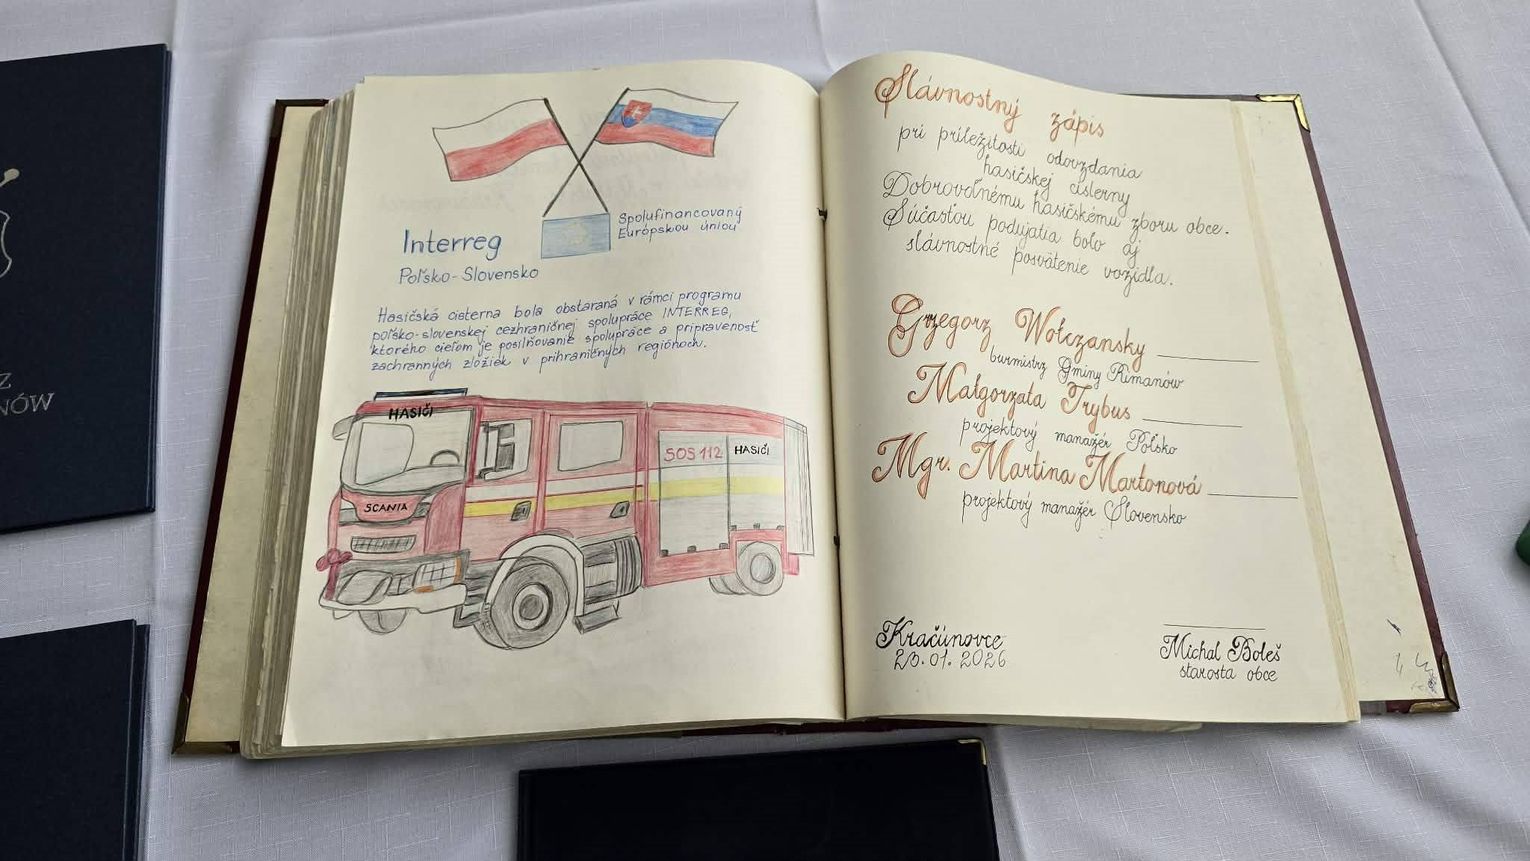 Interreg
Poľsko-Slovensko
Spolufinancovaný
Európskou úniou
Hasičská cisterna bola obstaraná v rámci programu
poľsko-slovenskej cezhraničnej spolupráce INTERREG,
ktorého cieľom je posilňovanie spolupráce a pripravenosť
záchranných zložiek v prihraničných regiónoch.
HASIČI
SOS 112
HASIČI
SCANIA
Slávnostný zápis
pri príležitosti odovzdania
hasičskej cisterny
Dobrovoľnému hasičskému zboru obce.
Súčasťou podujatia bolo aj
slávnostné posvätenie vozidla.
Grzegorz Wołczansky
burmistrz Gminy Rimanów
Małgorzata Trybus
projektový manažér Poľsko
Mgr. Martina Martonová
projektový manažér Slovensko
Kračúnovce
23.01.2026
Michal Boleš
starosta obce